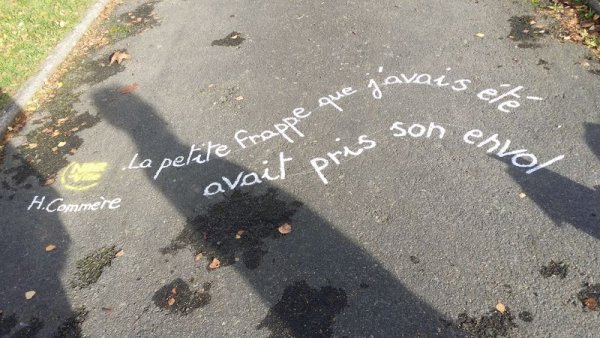 .La petite frappe que j'avais été
avait pris son envol
H.Commère